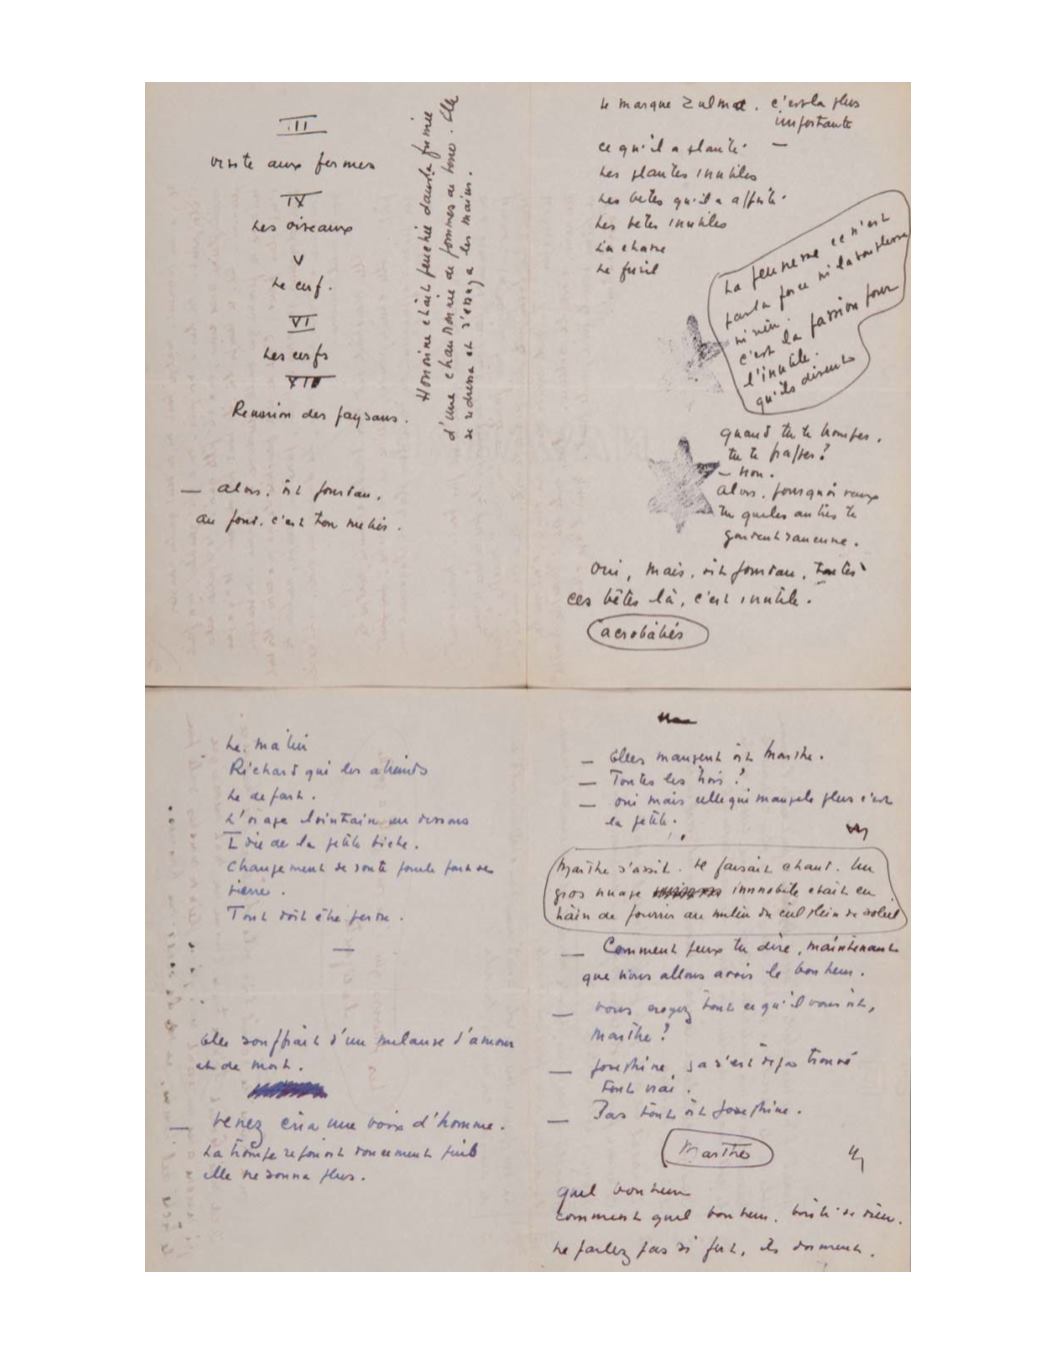 III
visite aux fermes
IV
Les oiseaux
V
Le cerf.
VI
Les cerfs
VII
Reunion des paysans.
— alors, dit Jourdan,
au fond, c'est ton metier.
Honorine était penchée dans la fumée
d'une chaudronnée de pommes de terre. Elle
se redressa et s'essuya les mains.
Le marque Zulma. c'est la plus
importante
ce qu'il a planté. —
Les plantes inutiles
Les betes qu'il a
Les betes inutiles
La chasse
Le fusil
La jeunesse ce n'est
pas la force ni la souplesse
ni rien.
c'est la passion pour
l'inutile.
qu'ils disent
quand tu te trompes,
tu te frappes?
— non.
alors, pourquoi veux
tu que les autres te
gardent rancune.
oui, mais, dit Jourdan, toutes
ces bêtes là, c'est inutile.
acrobaties
Le matin
Richard qui les attends
Le depart.
L'orage lointain au dessous
Idée de la petite biche.
Changement de route
pierre.
Tout doit être perdu.
—
Elle souffrait d'un melange d'amour
et de mort.
— venez cria une voix d'homme.
La trompe repondit doucement puis
elle ne sonna plus.
— Elles mangent dit Marthe.
— Toutes les trois?
— oui mais celle qui mange le plus c'est
la petite.
Marthe s'assit. Il faisait chaud. Un
gros nuage immobile etait en
train de pourrir au milieu du ciel plein de soleil
— Comment peux tu dire, maintenant
que nous allons avoir le bonheur.
— vous croyez tout ce qu'il vous dit,
Marthe?
— Josephine, ça s'est déjà trouvé
tout vrai.
— Pas tout dit Josephine.
Marthe
quel bonheur
comment quel bonheur.
Ne parlez pas si fort, ils dorment.